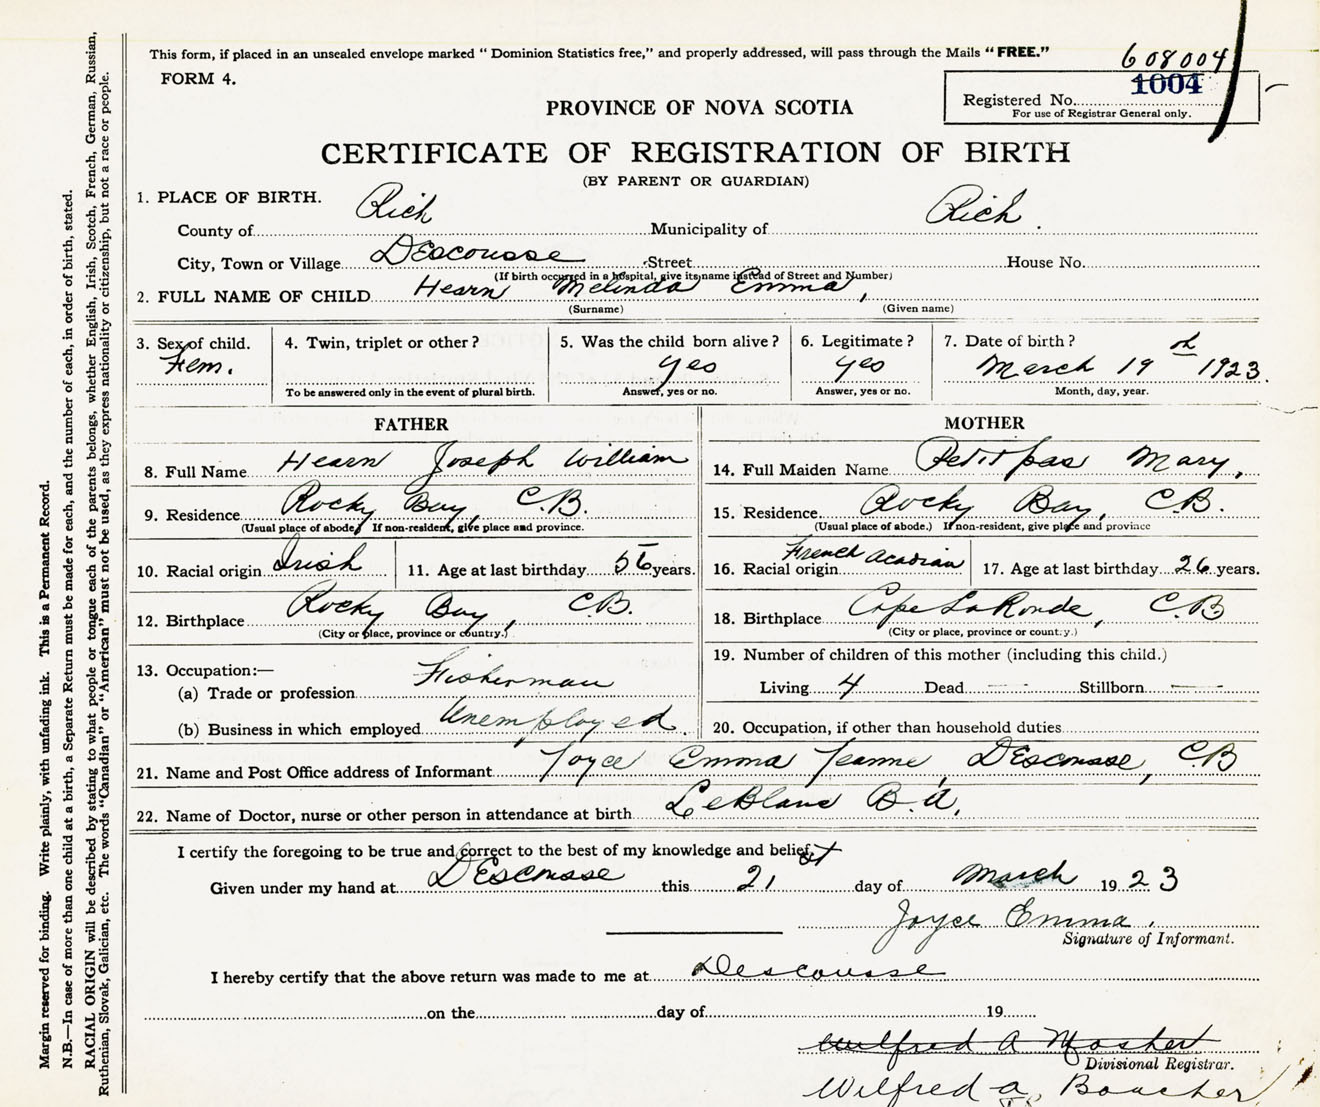 This form, if placed in an unsealed envelope marked " Dominion Statistics free," and properly addressed, will pass through the Mails "FREE."
608004
FORM 4.
1004
Registered No.
For use of Registrar General only.
PROVINCE OF NOVA SCOTIA
CERTIFICATE OF REGISTRATION OF BIRTH
(BY PARENT OR GUARDIAN)
1. PLACE OF BIRTH.
County of Rich Municipality of Rich
City, Town or Village DEscousse Street House No.
(If birth occurred in a hospital, give its name instead of Street and Number)
2. FULL NAME OF CHILD Hearn Melinda Emma,
(Surname) (Given name)
3. Sex of child. 4. Twin, triplet or other? 5. Was the child born alive? 6. Legitimate? 7. Date of birth?
Fem. yes yes March 19th 1923.
To be answered only in the event of plural birth. Answer, yes or no. Answer, yes or no. Month, day, year.
FATHER
8. Full Name Hearn Joseph William
9. Residence Rocky Bay, C.B.
(Usual place of abode) If non-resident, give place and province.
10. Racial origin Irish 11. Age at last birthday years.
12. Birthplace Rocky Bay, C.B.
(City or place, province or country.)
13. Occupation:—
(a) Trade or profession Fisherman
(b) Business in which employed Unemployed.
MOTHER
14. Full Maiden Name Petitpas Mary,
15. Residence Rocky Bay, C.B.
(Usual place of abode.) If non-resident, give place and province
16. Racial origin French Acadian 17. Age at last birthday 26 years.
18. Birthplace Cape LaRonde, C.B
(City or place, province or country.)
19. Number of children of this mother (including this child.)
Living 4 Dead — Stillborn —
20. Occupation, if other than household duties
21. Name and Post Office address of Informant Joyce Emma Jeanne, DEscousse, C.B
22. Name of Doctor, nurse or other person in attendance at birth LeBlanc B.A.
I certify the foregoing to be true and correct to the best of my knowledge and belief.
Given under my hand at DEscousse this 21st day of March 1923
Joyce Emma.
Signature of Informant.
I hereby certify that the above return was made to me at Descousse
on the day of 19
Wilfred A Mosher
Divisional Registrar.
Wilfred A. Boucher
Margin reserved for binding. Write plainly, with unfading ink. This is a Permanent Record.
N.B.—In case of more than one child at a birth, a Separate Return must be made for each, and the number of each, in order of birth, stated.
RACIAL ORIGIN will be described by stating to what people or tongue each of the parents belongs, whether English, Irish, Scotch, French, German, Russian,
Ruthenian, Slovak, Galician, etc. The words "Canadian" or "American" must not be used, as they express nationality or citizenship, but not a race or people.